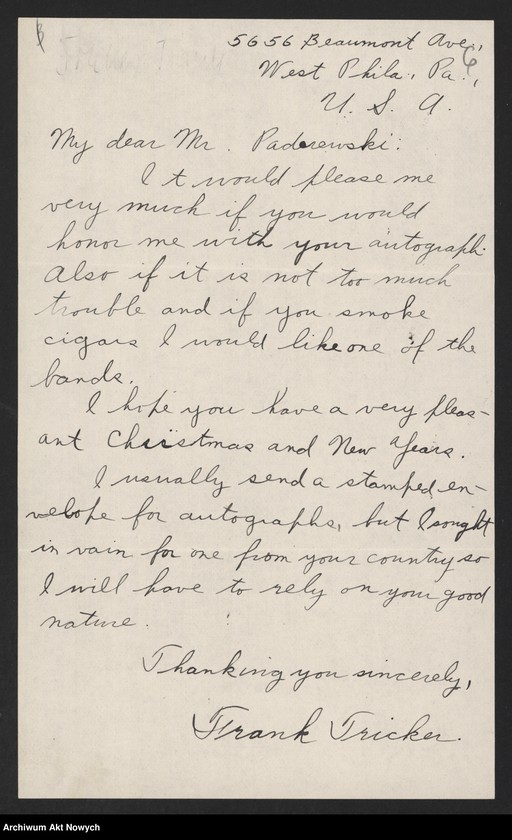 5656 Beaumont Ave.,
6
West Phila., Pa.,
U. S. A.
My dear Mr. Paderewski:
It would please me
very much if you would
honor me with your autograph.
Also if it is not too much
trouble and if you smoke
cigars I would like one of the
bands.
I hope you have a very pleas-
ant Christmas and New Years.
I usually send a stamped en-
velope for autographs, but I sought
in vain for one from your country so
I will have to rely on your good
nature.
Thanking you sincerely,
Frank Tricker.
Archiwum Akt Nowych